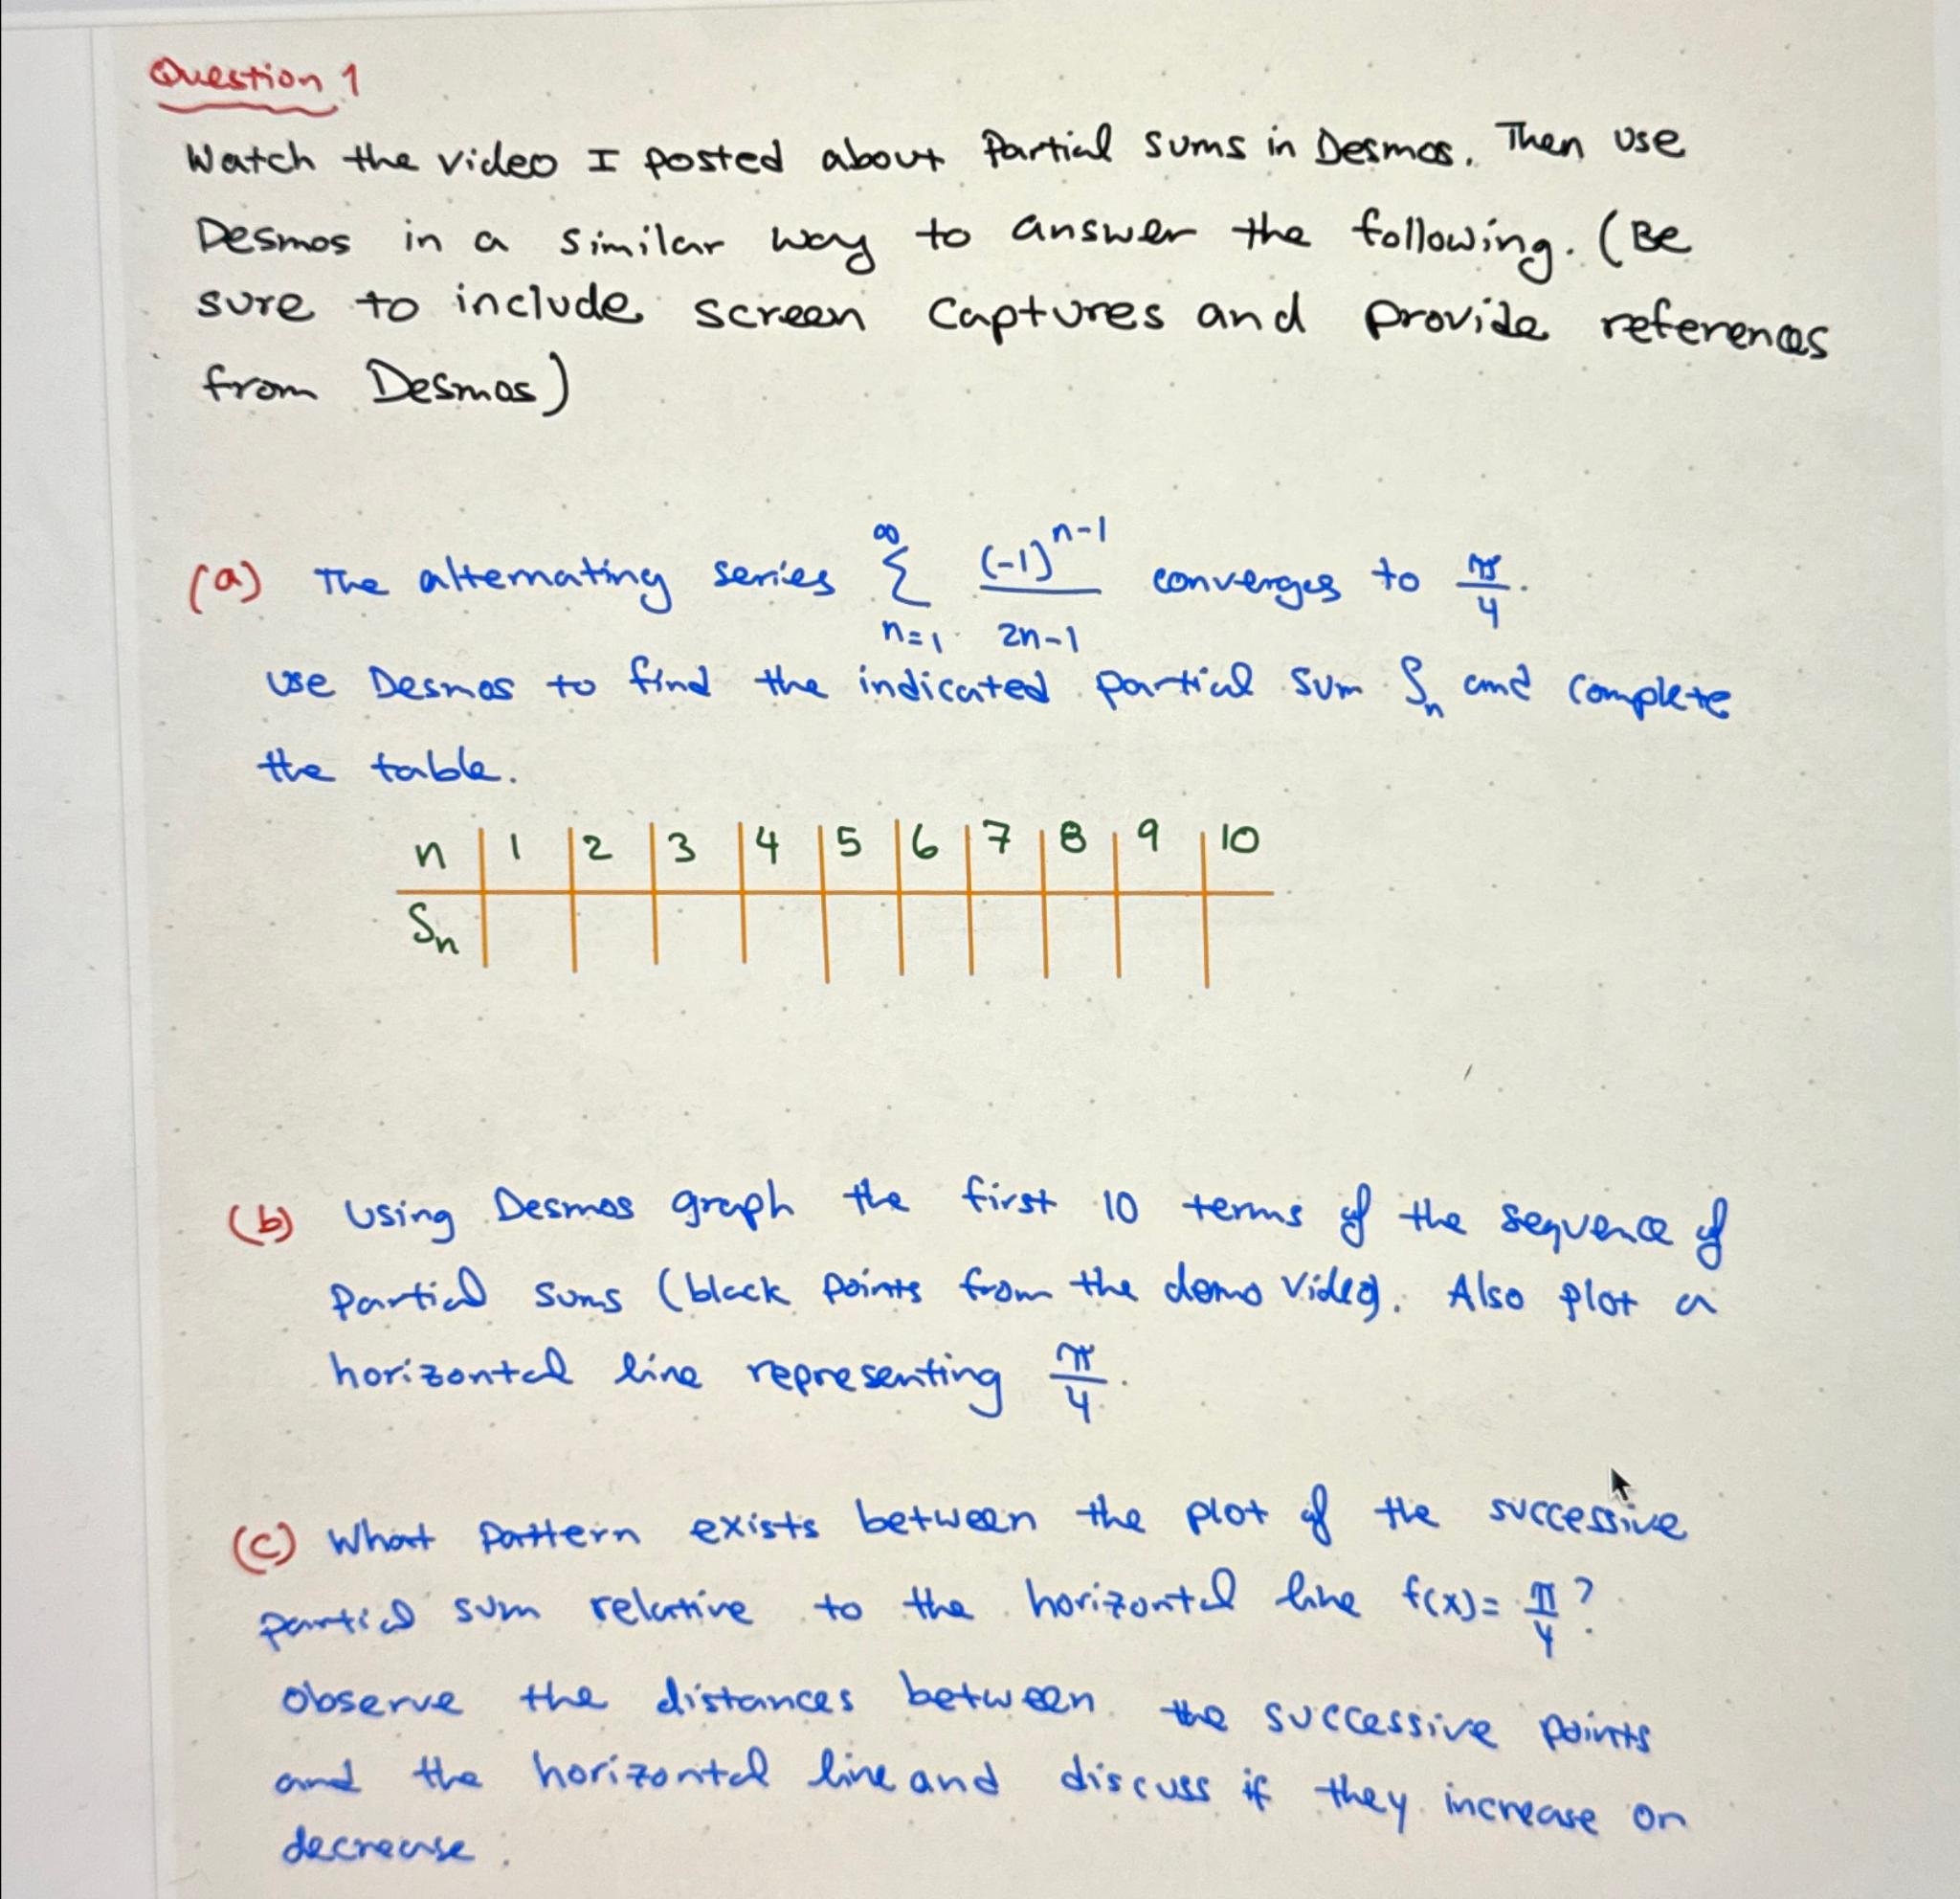 Question 1
Watch the video I posted about Partial sums in Desmos. Then use
Desmos in a similar way to answer the following. (Be
sure to include screen captures and provide references
from Desmos)
(a) The alternating series ∑_{n=1}^{∞} (-1)^{n-1}/(2n-1) converges to π/4.
use Desmos to find the indicated partial sum Sn and complete
the table.
n | 1 | 2 | 3 | 4 | 5 | 6 | 7 | 8 | 9 | 10
Sn
(b) Using Desmos graph the first 10 terms of the sequence of
Partial sums (black points from the demo video). Also plot a
horizontal line representing π/4.
(c) What pattern exists between the plot of the successive
partial sum relative to the horizontal line f(x)= π/4?
Observe the distances between the successive points
and the horizontal line and discuss if they increase or
decrease.